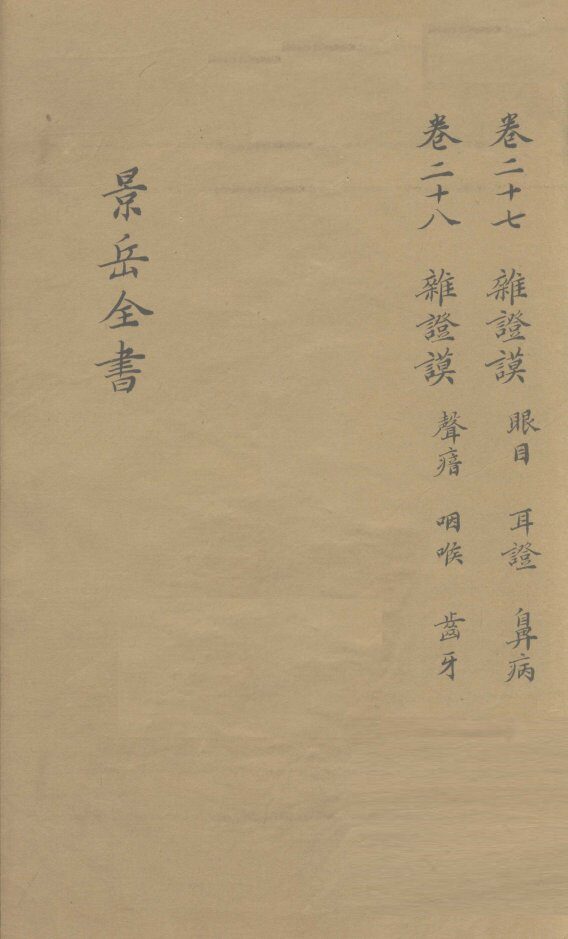 卷二十七 雜證謨 眼目 耳證 鼻病
卷二十八 雜證謨 聲瘖 咽喉 齒牙
景岳全書